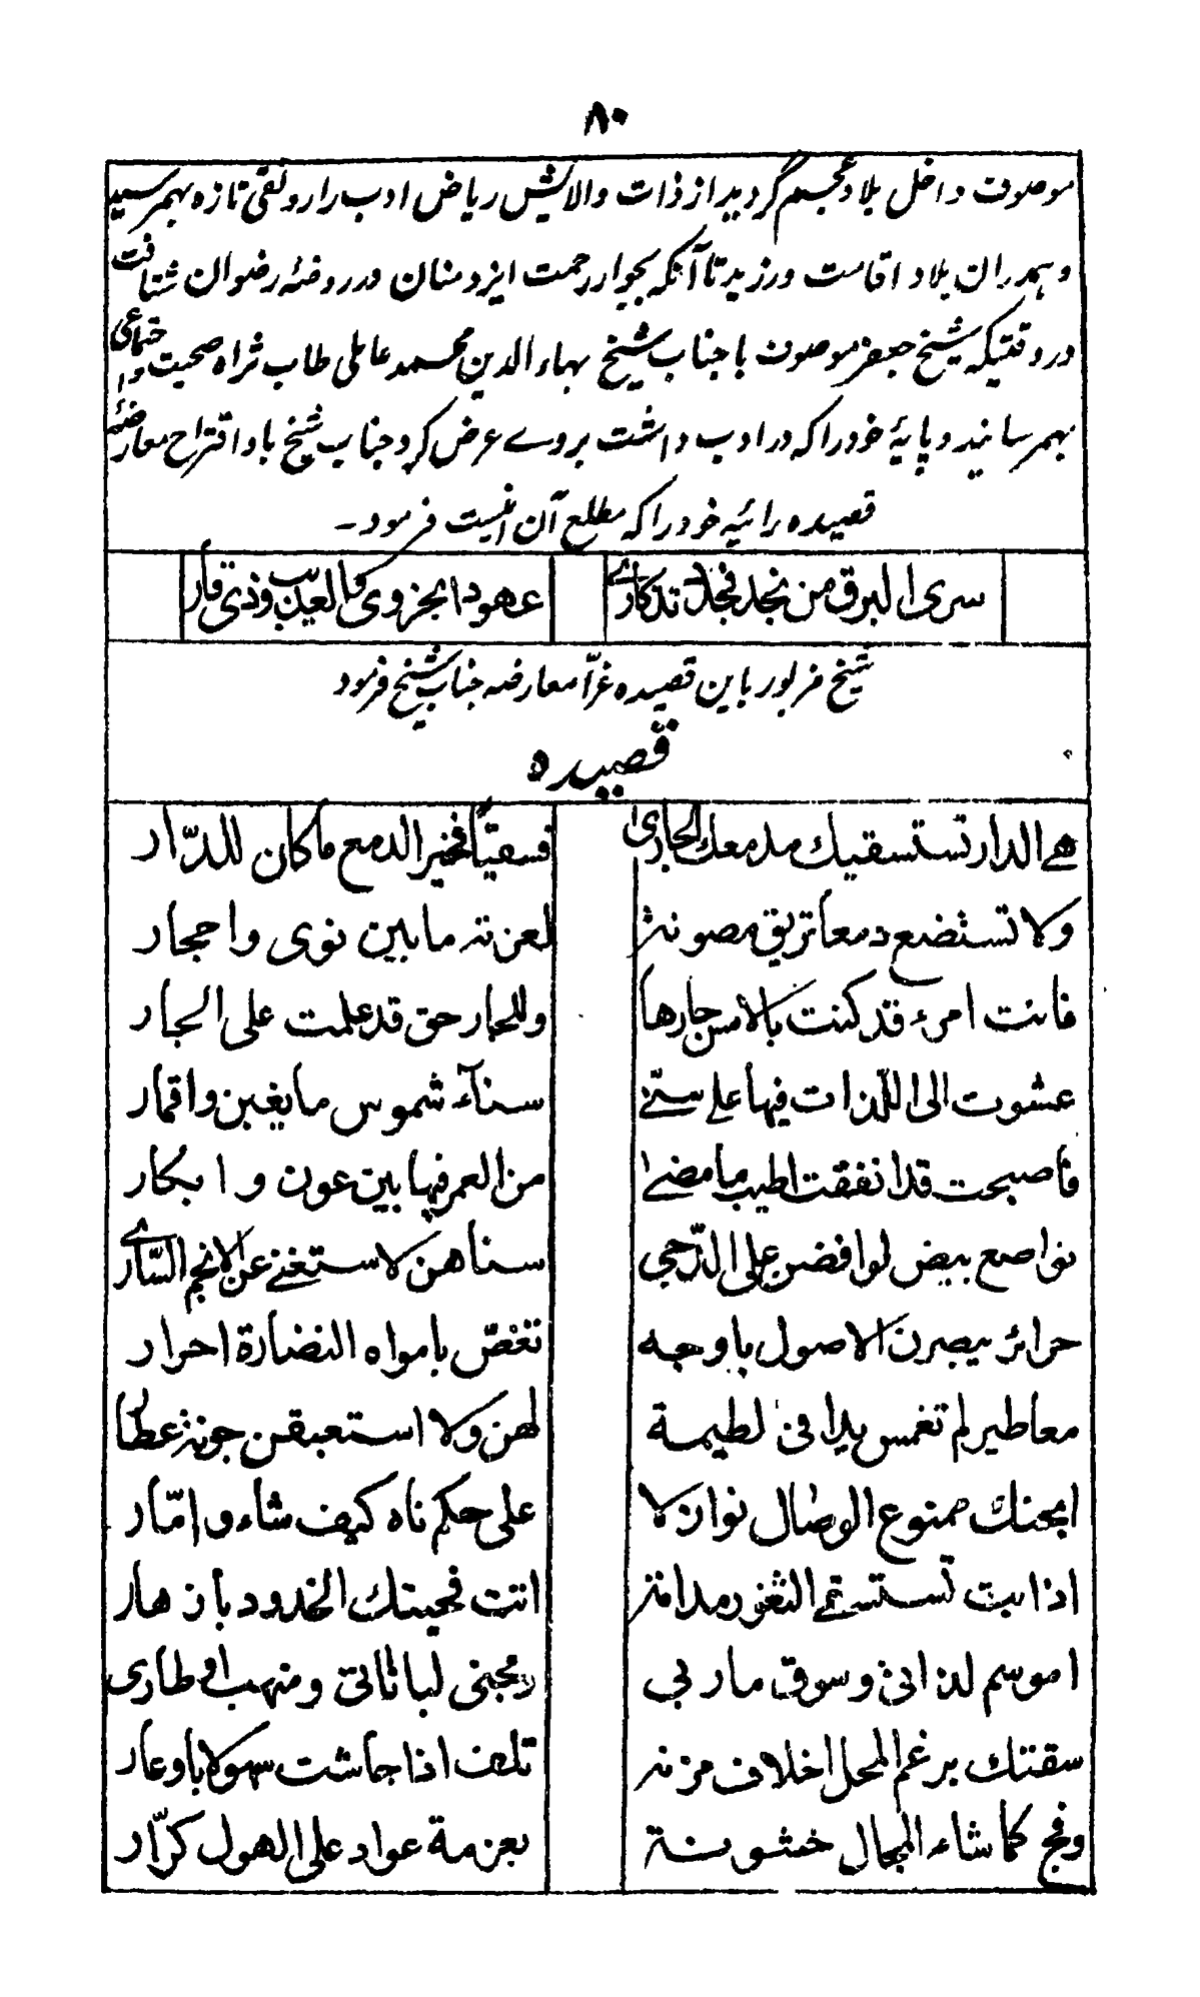 ۸۰
موصوف داخل بلاد عجم گردید از ذات والایش ریاض ادب را رونقی تازه بهم رسید
و بهمدران بلاد اقامت ورزید تا آنکه بجوار رحمت ایزد منان در روضهٔ رضوان شتافت
در وقتیکه شیخ جعفر موصوف با جناب شیخ بهاء الدین محمد عاملی طاب ثراه صحبت و اجتماعی
بهم رسانید و پایهٔ خود را که در ادب داشت بروے عرض کرد جناب شیخ باو اقتراح معارضهٔ
قصیده رائیه خود را که مطلع آن اینست فرمود ـ
سری البرق من نجد فجدد تذکاری
عهودا بحزوی والعذیب وذی قار
شیخ مزبور باین قصیده غرّا معارضه جناب شیخ فرمود
قصیده
هی الدار تستسقیك مدمعك الجاری
فسقیًا فخیر الدمع ما کان للدّار
ولا تستضع دمعا تریق مصونه
لعزته ما بین نوی واحجار
فانت امرء قد کنت بالامس جارها
وللجار حق قد علمت علی الجار
عشوت الی اللّذات فیها علی سنی
سنآء شموس ما یغبن واقمار
فاصبحت قد انفقت اطیب ما مضی
من العمر فیها بین عون وابکار
نواصع بیض لو افضن علی الدّجی
سناهن لاستغنی عن الانجم السّاری
حرائر یبصرن الاصول باوجه
تغصّ بامواه النضارة احرار
معاطیر لم تغمس یدا فی لطیمة
لهن ولا استعبقن جونة عطار
ابحنك ممنوع الوصال نوازلا
علی حکم ناه کیف شاء وامّار
اذا بت تستسقی الثغور مدامة
اتتك فحیتك الخدود بازهار
اموسم لذاتی وسوق ماربی
ومجنی لباناتی ومنهب اوطاری
سقتك برغم المحل اخلاف مزنه
تلف اذا جاشت سهولا باوعار
وفج کما شاء المجال خشونة
بعزمة عواد علی الهول کرّار